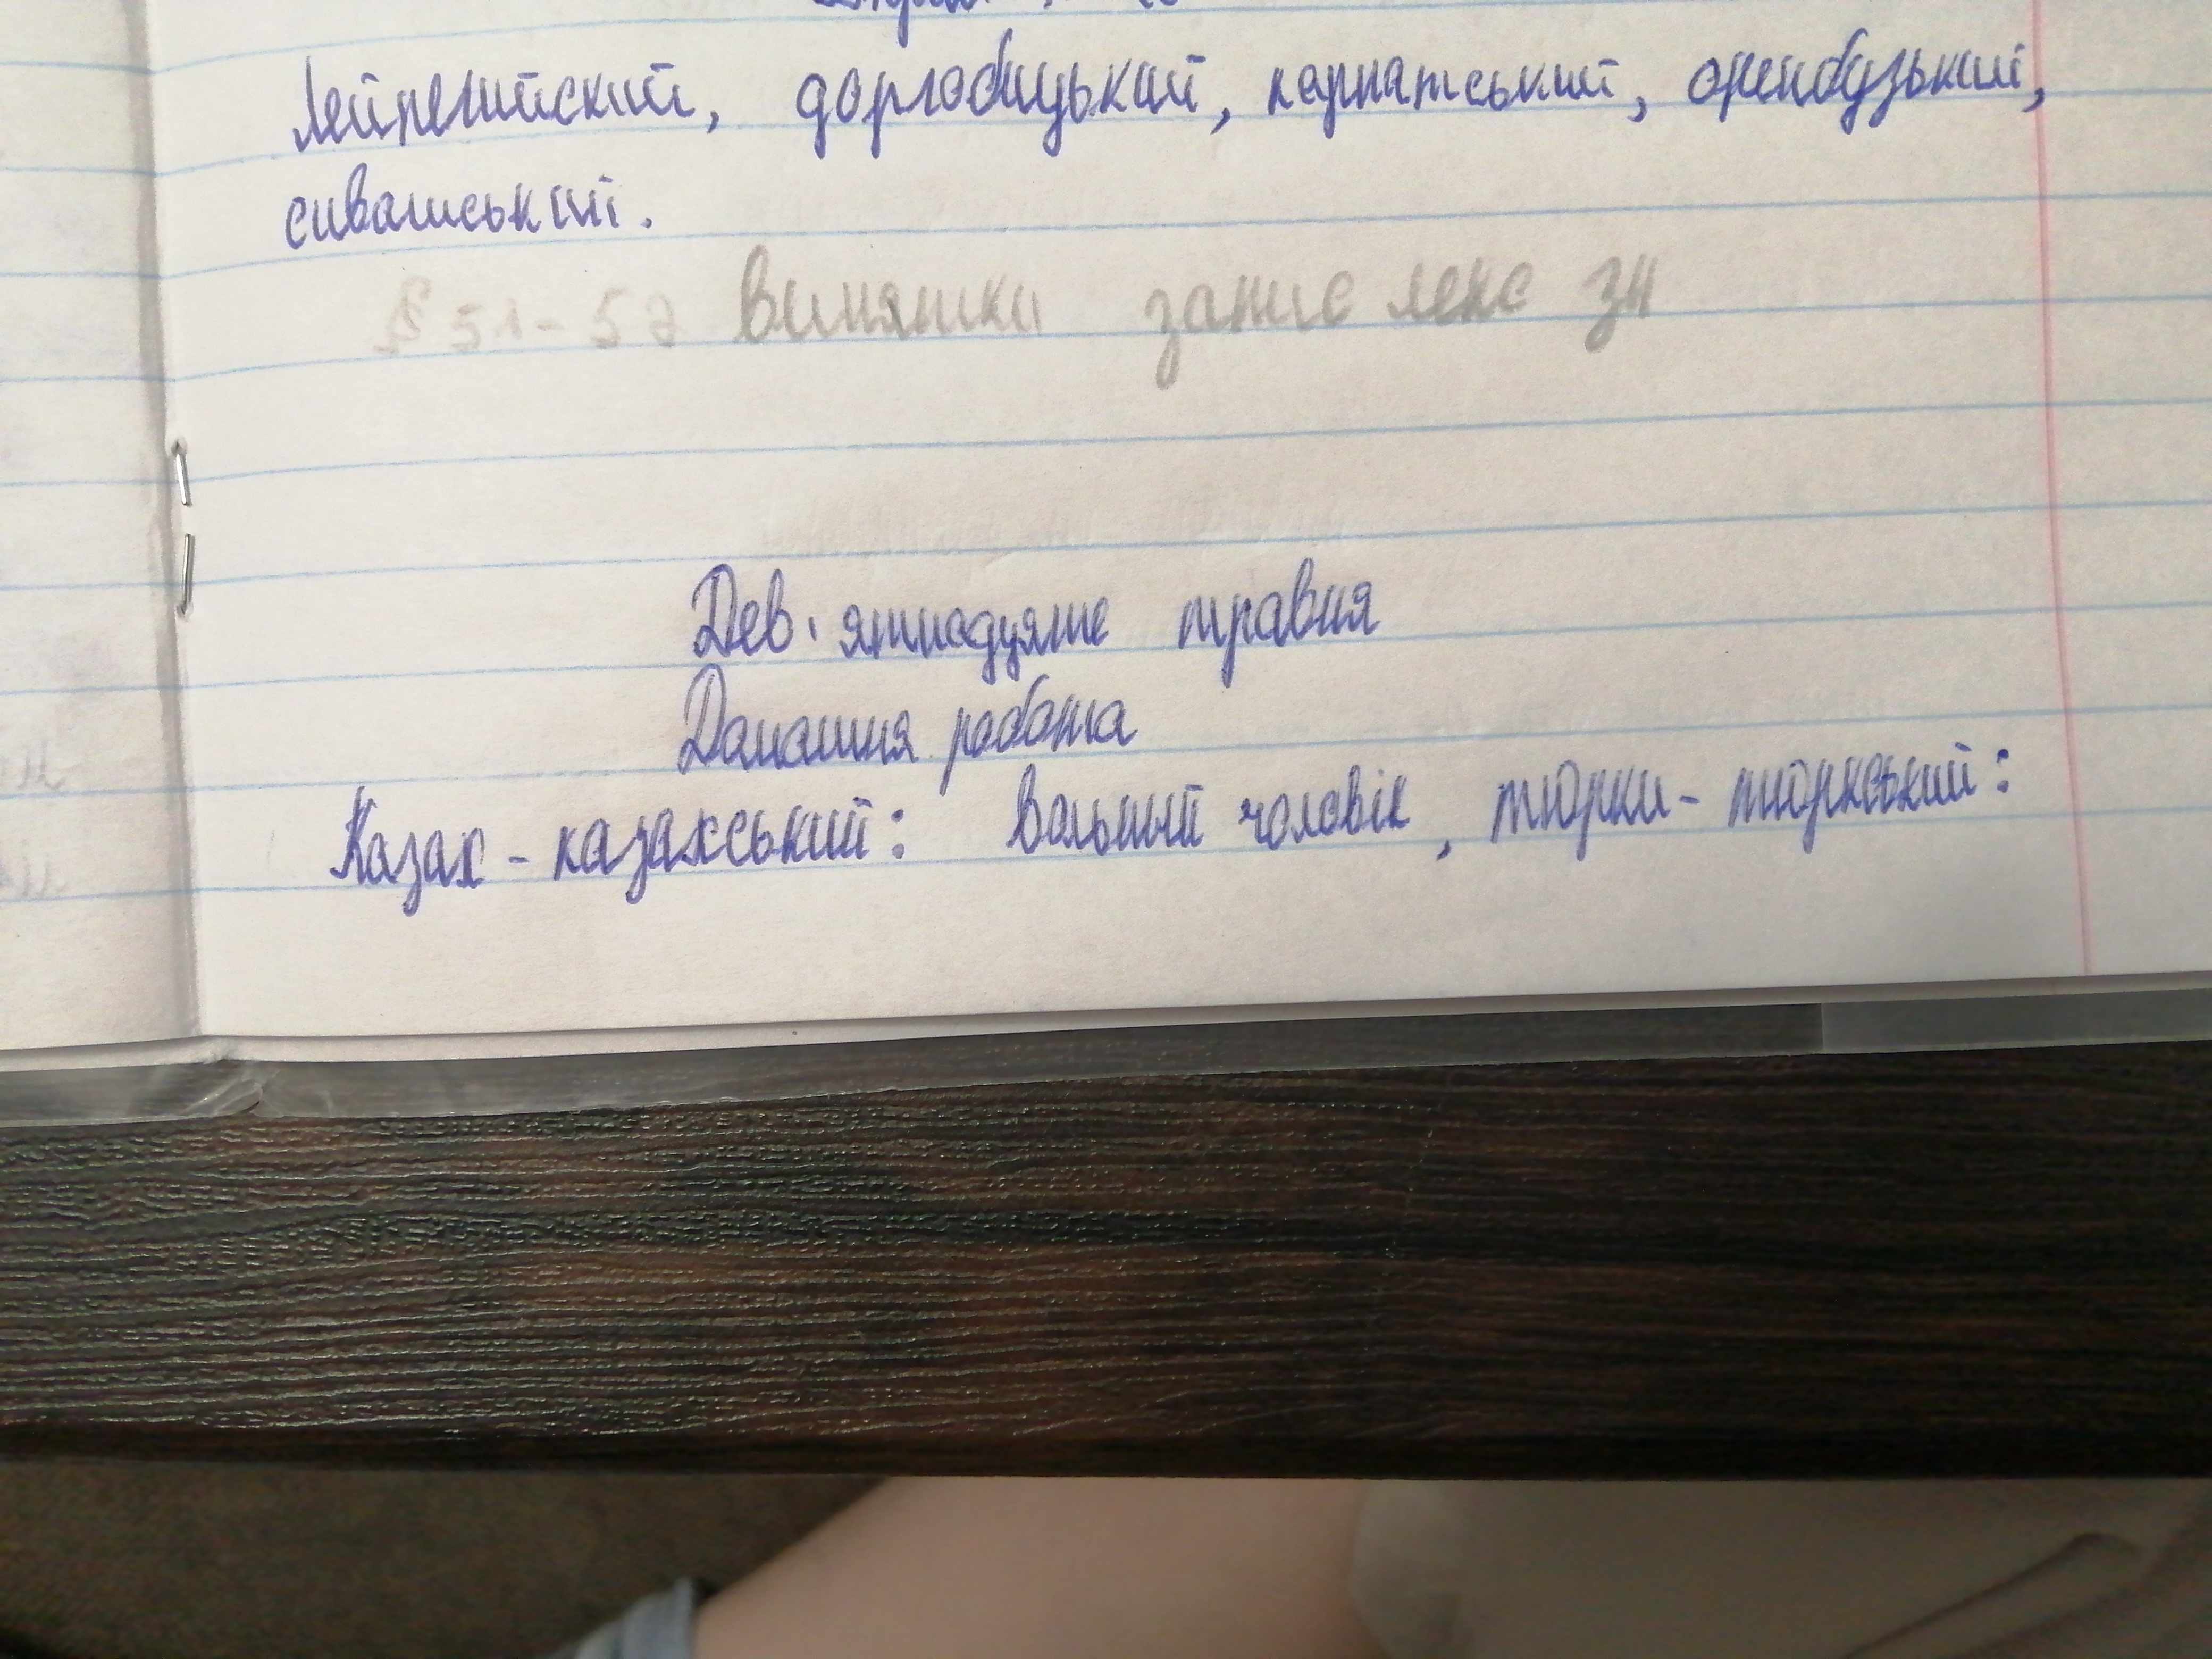 Лейпсийский, доргобицький, карпатський, оренбузький,
сивашський.
§ 51-52 Винятки запис лекс зн
Дев'ятнадцяте травня
Домашня робота
Казах - казахський: вольный чоловік, тюрки - тюркський: